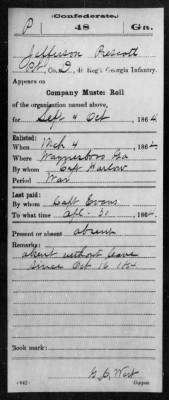 (Confederate.)
P 48 Ga.
Jefferson Prescott
Pvt, Co. D, 48 Reg't Georgia Infantry.
Appears on
Company Muster Roll
of the organization named above,
for Sept & Oct, 1864
Enlisted:
When Mch 4, 186
Where Waynesboro Ga
By whom Capt Harlow
Period War
Last paid:
By whom Capt Evans
To what time Apl. 30, 1864.
Present or absent absent
Remarks:
absent without leave
since Oct 16 1864
Book mark:
(642) Copyist.